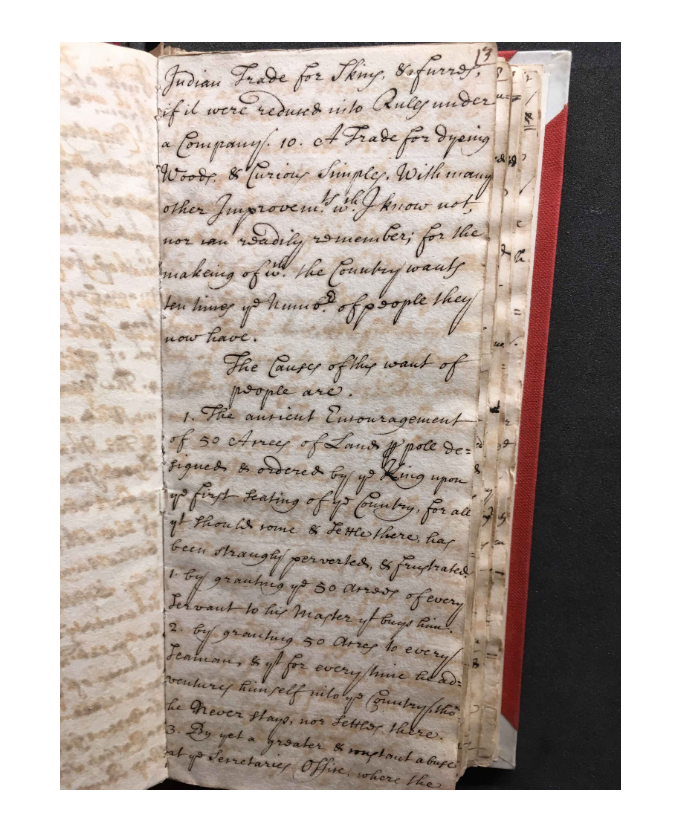 13
Indian Trade for Skins, & furres,
if it were reduced into Rules under
a Company. 10. A Trade for dyeing
Woods, & Curious Simples, With many
other Improvemts. wch. I know not,
nor can readily remember; for the
makeing of wch. the Country wants
ten times ye Numbr. of people they
now have.
The Causes of this want of
people are.
1. The antient Encouragement
of 50 Acres of Land ꝑ poll de=
signed & ordered by ye King upon
ye first Seating of ye Country, for all
yt should come & Settle there, has
been strangly perverted, & frustrated
1. by granting ye 50 Acres of every
Servant to his Master yt buys him.
2. by granting 50 Acres to every
Seaman, & yt for every time he ad=
ventures himself into ye Country, tho
he Never stays, nor Settles there.
3. By yet a greater & constant abuse
at ye Secretaries Office, where the